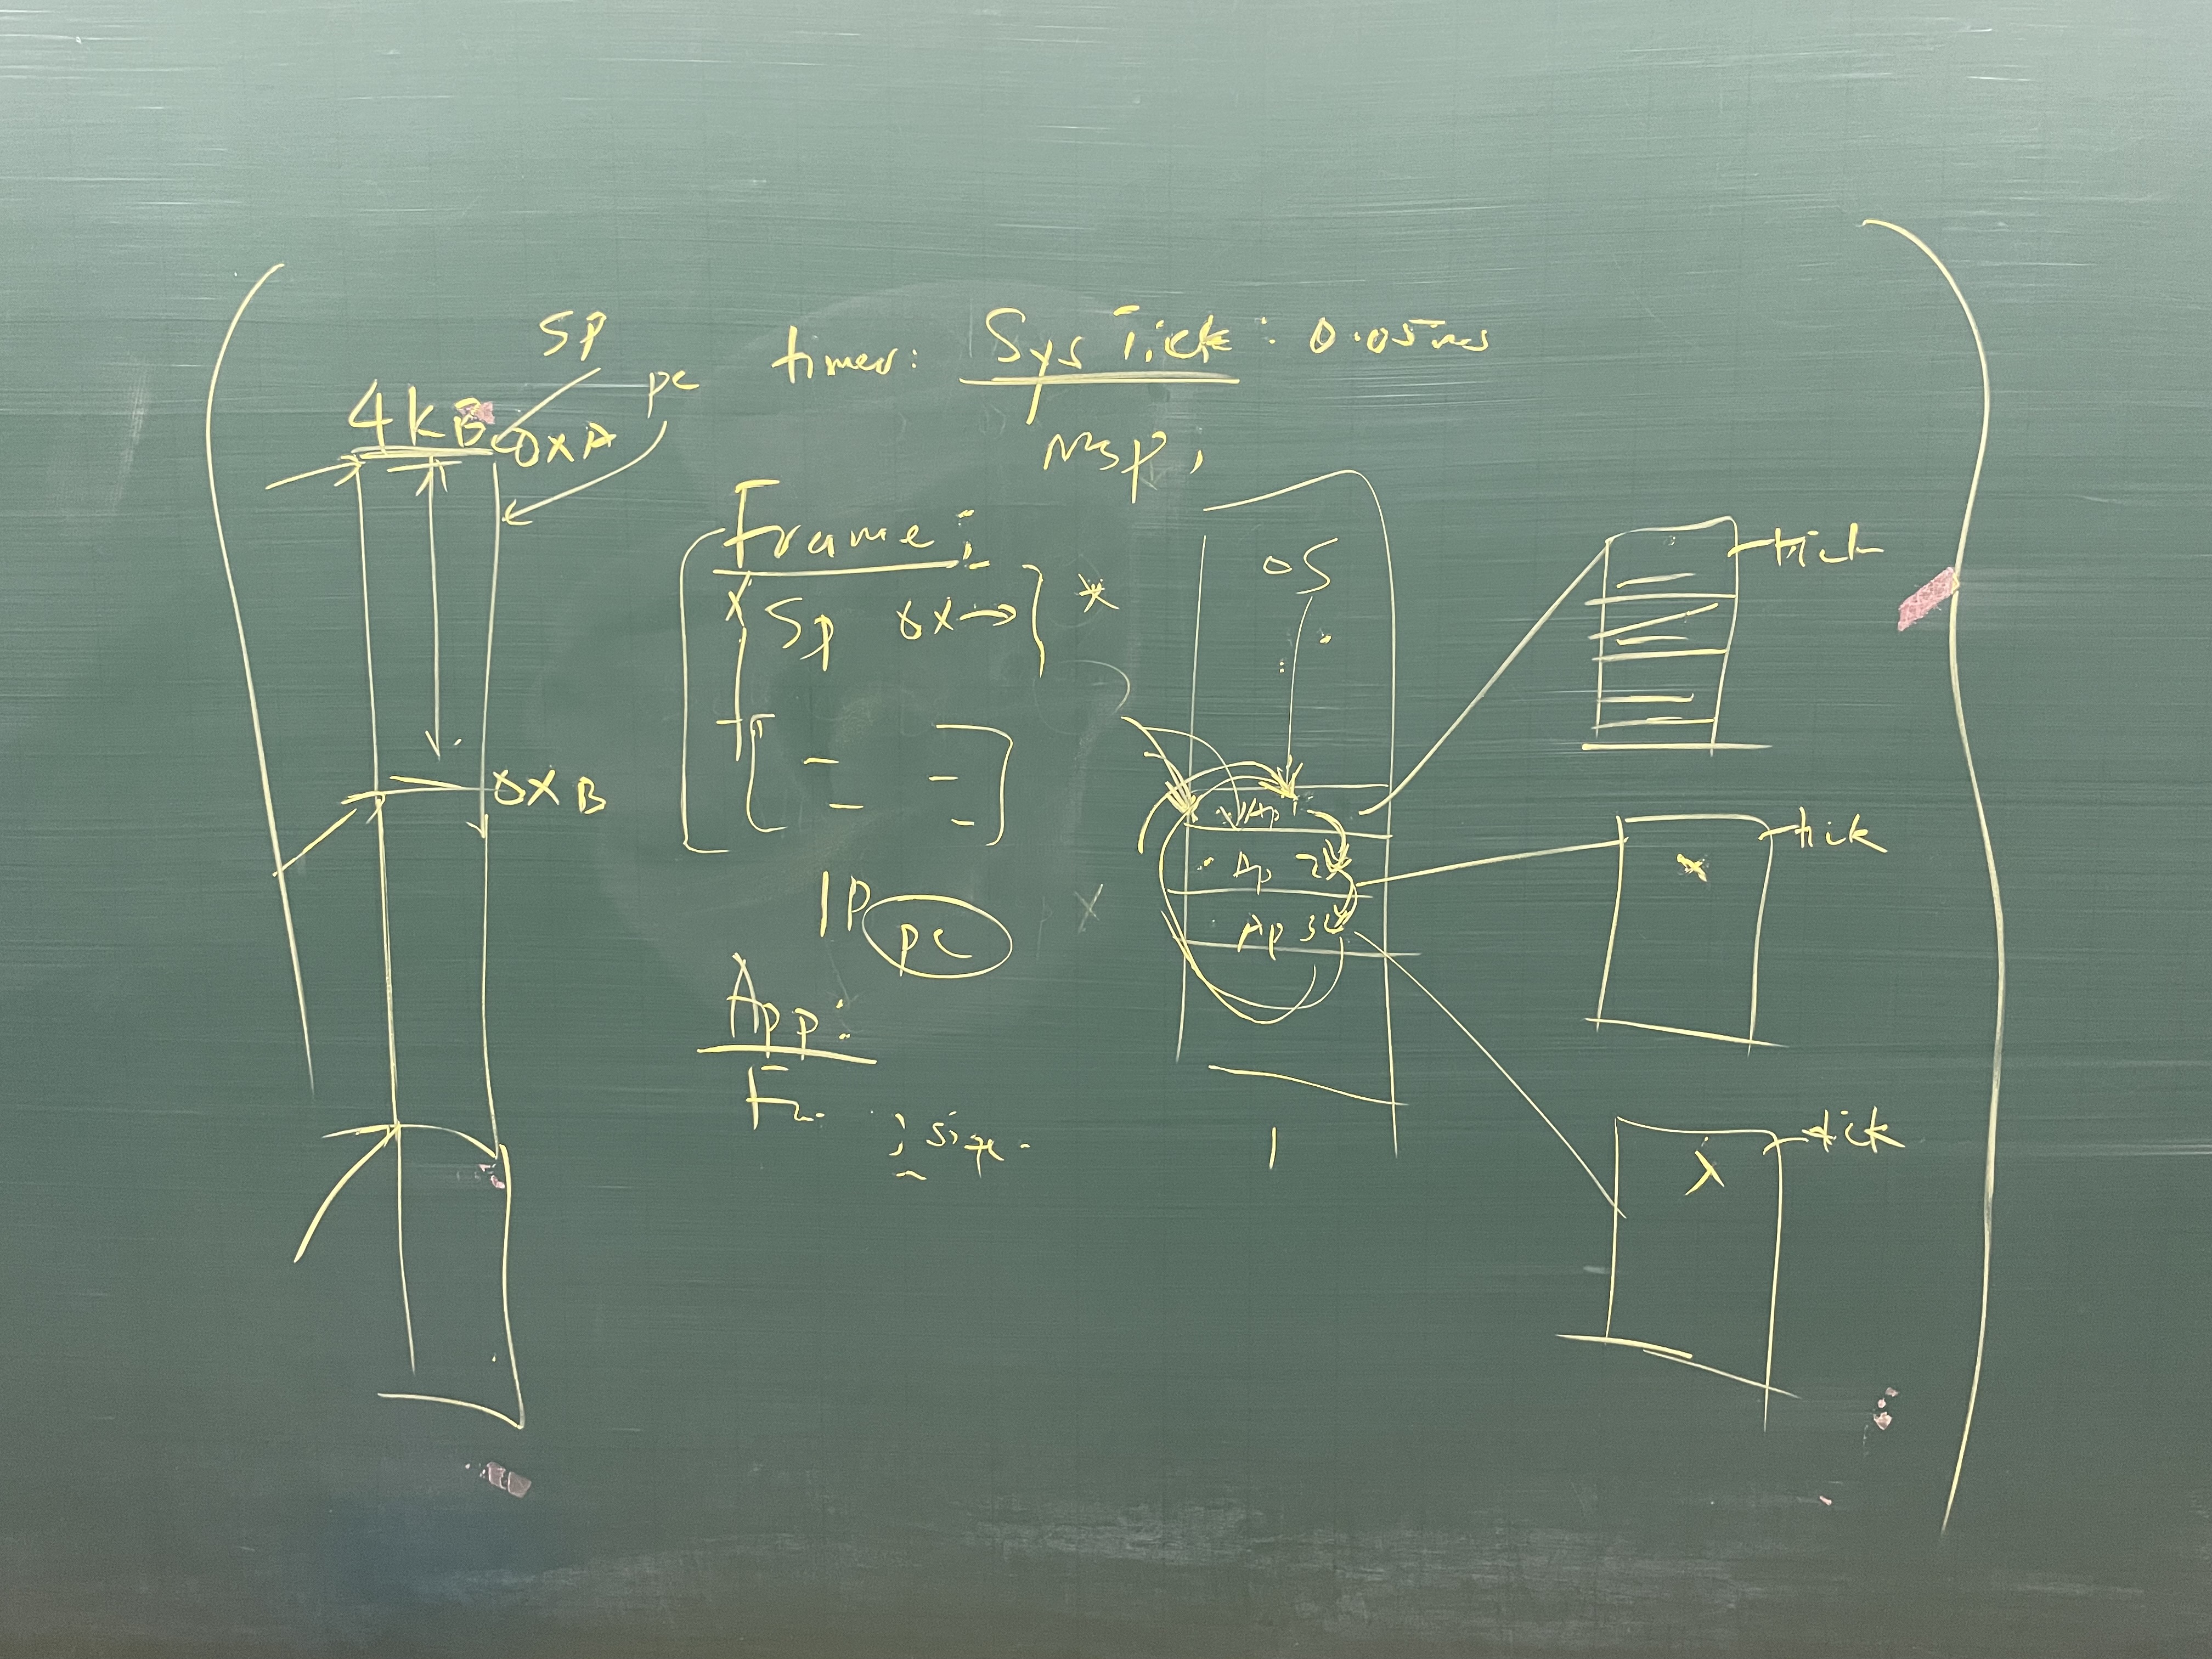 SP
pc
4KB
0xA
0xB
timer: SysTick: 0.05ms
MSP,
Frame:
Sp 0x→ } *
IP
pc
App:
Fr.
; size.
OS
Ap 1
Ap 2
Ap 3
tick
tick
tick